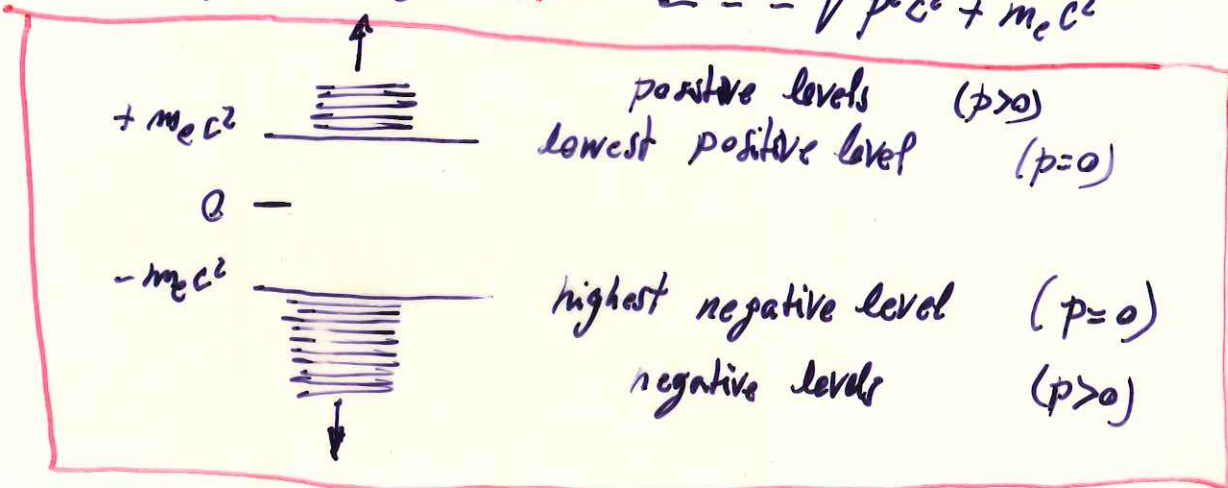 √p²c² + mₑc²
positive levels (p>0)
+ mₑc² lowest positive level (p=0)
0
- mₑc² highest negative level (p=0)
negative levels (p>0)